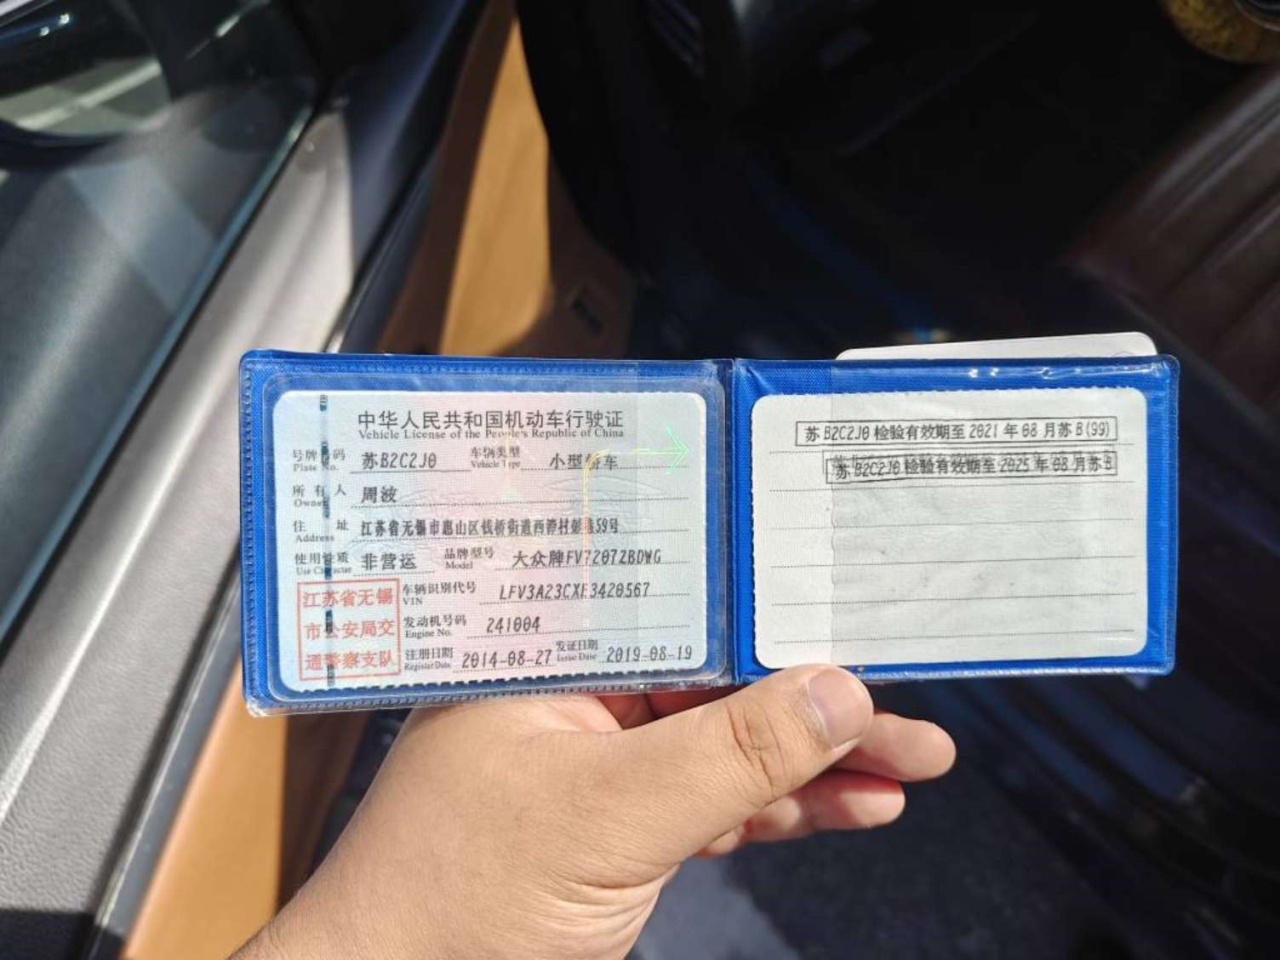 中华人民共和国机动车行驶证
Vehicle License of the People's Republic of China
号牌号码 苏B2C2J0 车辆类型 小型轿车
Plate No. Vehicle Type
所有人 周波
Owner
住址 江苏省无锡市惠山区钱桥街道西漳村 巷59号
Address
使用性质 非营运 品牌型号 大众牌FV7207ZBDWG
Use Character Model
江苏省无锡
市公安局交
通警察支队
车辆识别代号 LFV3A23CXE3420567
VIN
发动机号码 241004
Engine No.
注册日期 2014-08-27 发证日期 2019-08-19
Register Date Issue Date
苏B2C2J0 检验有效期至 2021 年 08 月苏 B(99)
苏 B2C2J0 检验有效期至 2025 年 08 月苏B